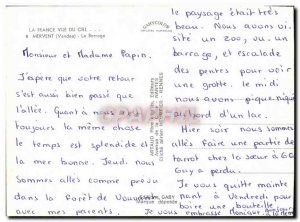 LA FRANCE VUE DU CIEL . . .
MERVENT (Vendée) - Le Barrage
Monsieur et Madame Papin.
J'espère que votre retour
s'est aussi bien passé que
l'allée. Quant à nous c'est
toujours la même chose
le temps est splendide et
la mer bonne. Jeudi nous
sommes allés comme prévu
dans la forêt de Vouvant
avec mes parents.
le paysage était très
beau. Nous avons vi-
sité un zoo, vu un
barrage, et escaladé
des pentes pour voir
une grotte. le midi
nous avons pique niqué
au bord d'un lac.
Hier soir nous sommes
allés faire une partie de
tarot chez la sœur à GG
Guy a perdu.
Je vous quitte mainte
nant à Vendredi pour
boire une bouteille
je vous embrasse